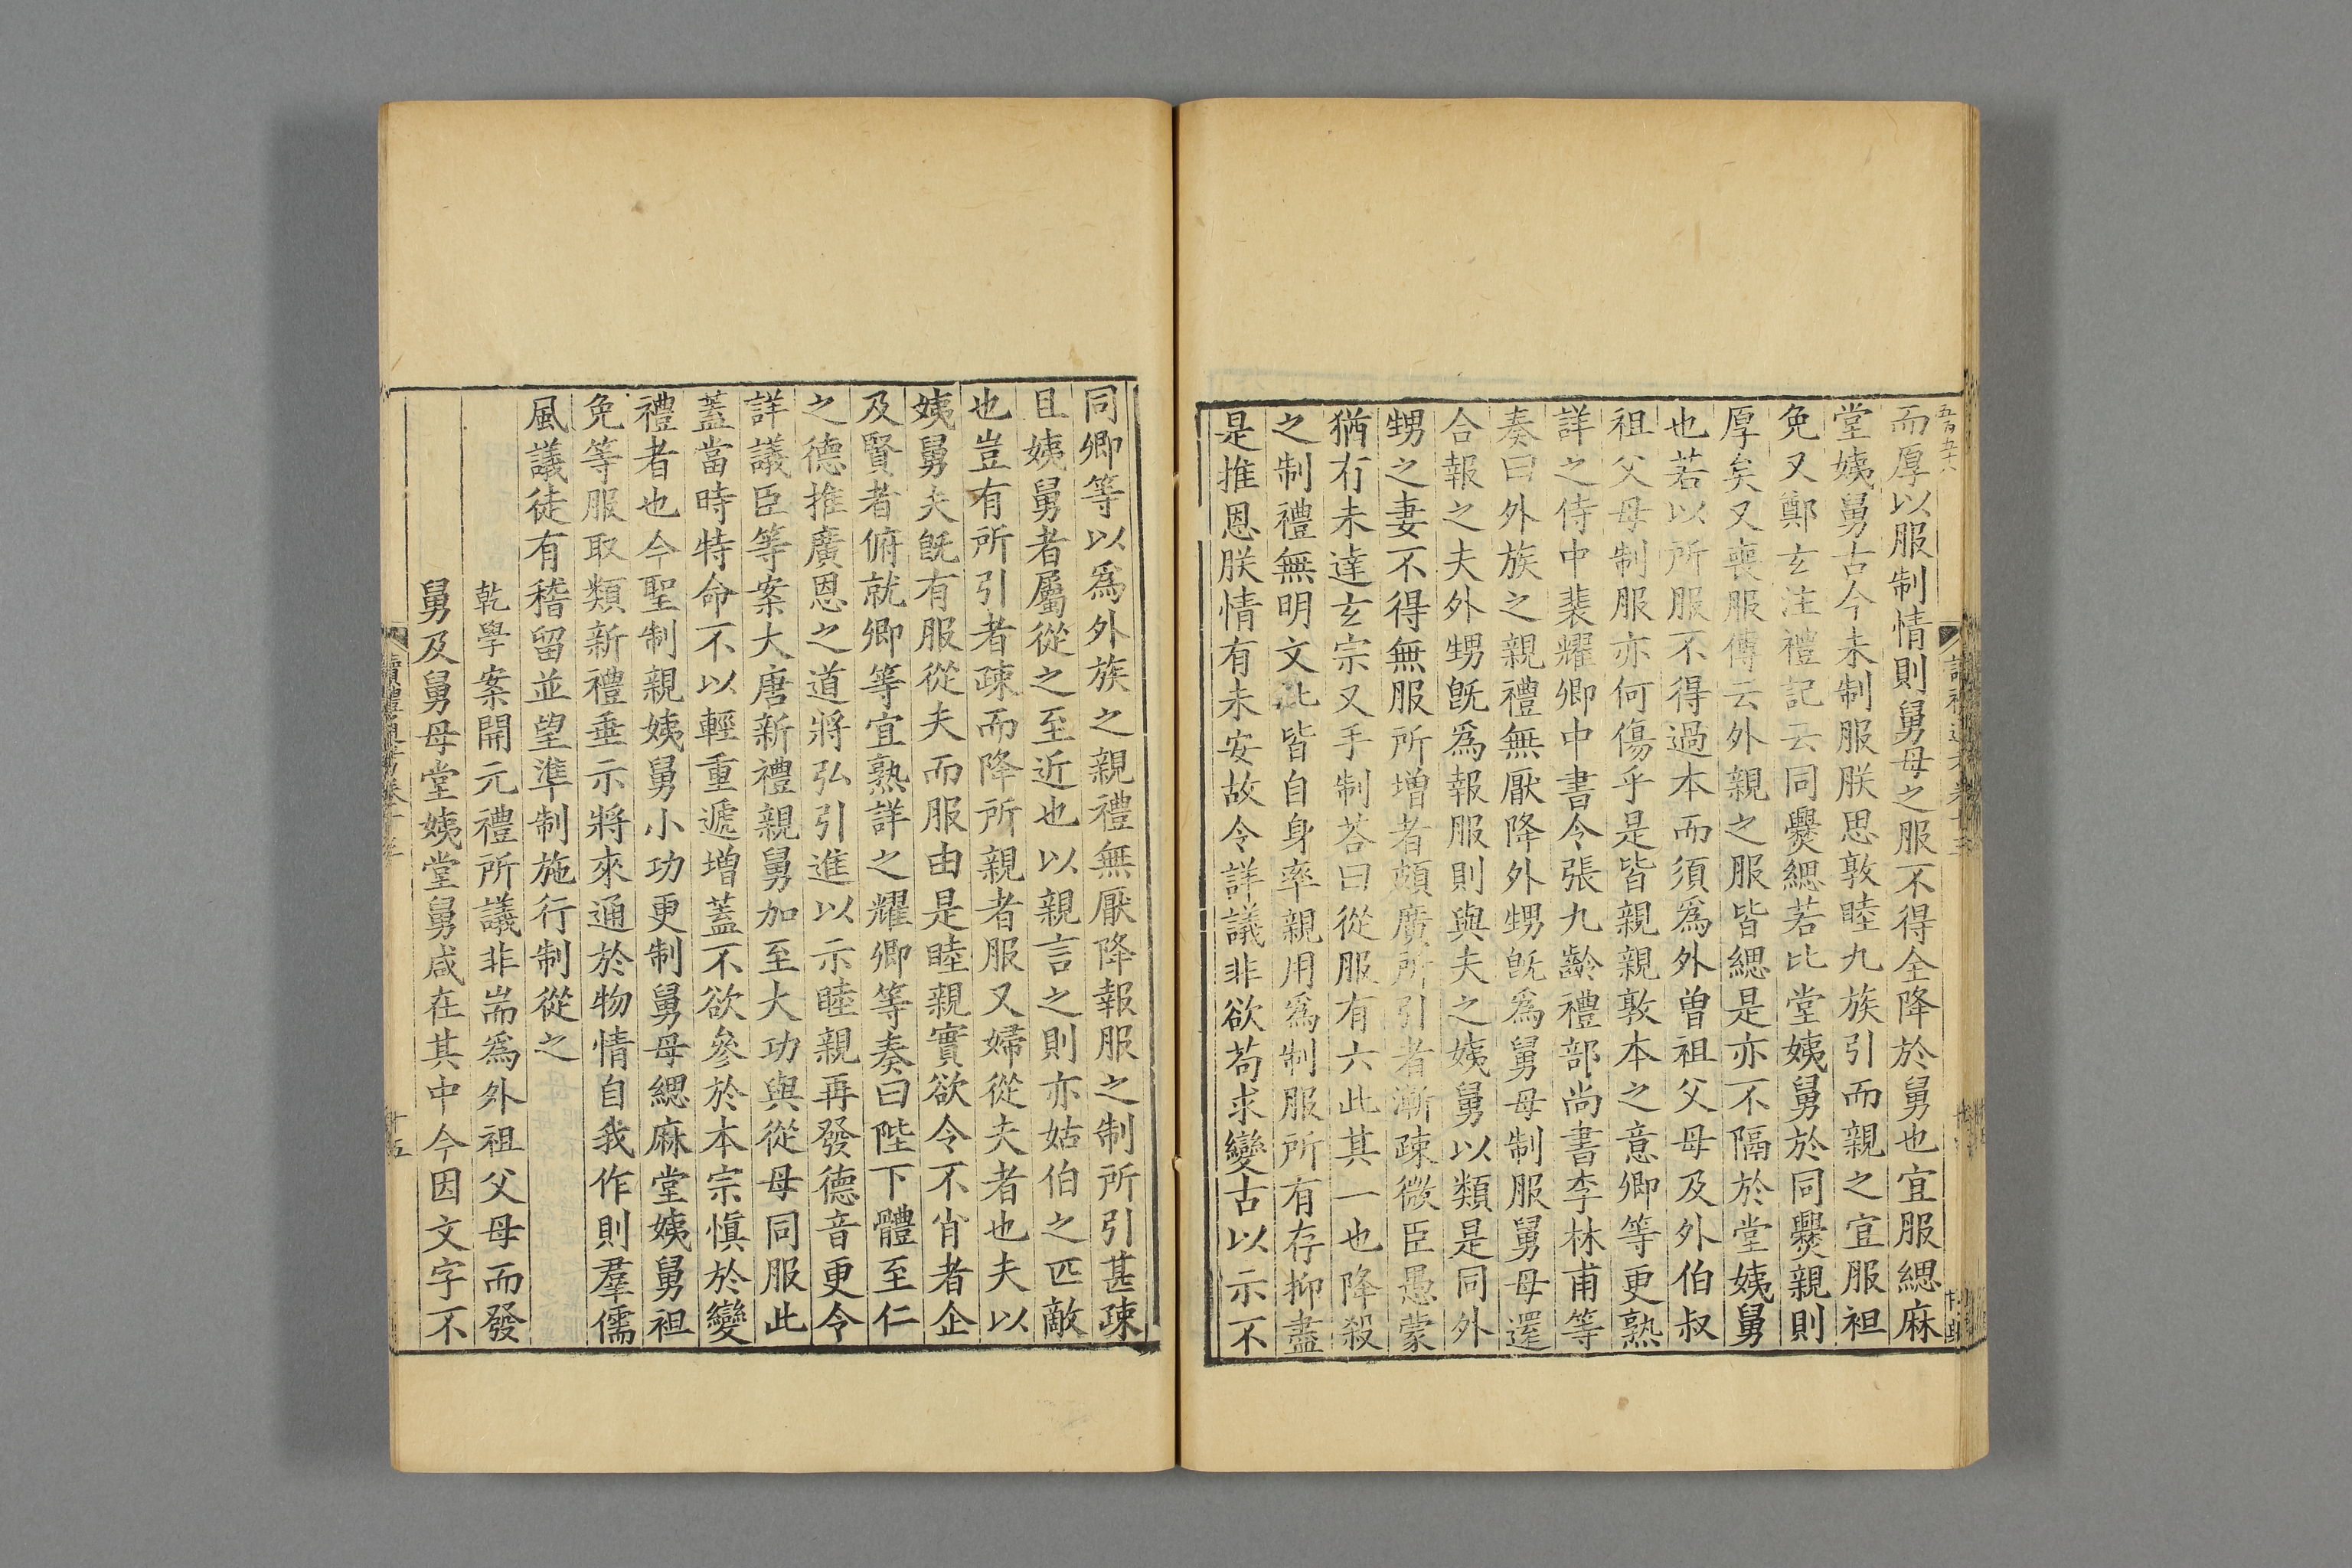 而厚以服制情則舅母之服不得全降於舅也宜服緦麻
堂姨舅古今未制服朕思敦睦九族引而親之宜服袒
免又鄭玄注禮記云同爨緦若比堂姨舅於同爨親則
厚矣又喪服傳云外親之服皆緦是亦不隔於堂姨舅
也若以所服不得過本而須爲外曾祖父母及外伯叔
祖父母制服亦何傷乎是皆親親敦本之意卿等更熟
詳之侍中裴耀卿中書令張九齡禮部尚書李林甫等
奏曰外族之親禮無厭降外甥旣爲舅母制服舅母還
合報之夫外甥旣爲報服則與夫之姨舅以類是同外
甥之妻不得無服所增者頗廣所引者漸疎微臣愚蒙
猶有未達玄宗又手制荅曰從服有六此其一也降殺
之制禮無明文此皆自身率親用爲制服所有存抑盡
是推恩朕情有未安故令詳議非欲苟求變古以示不
同卿等以爲外族之親禮無厭降報服之制所引甚疎
且姨舅者屬從之至近也以親言之則亦姑伯之匹敵
也豈有所引者疎而降所親者服又婦從夫者也夫以
姨舅夫旣有服從夫而服由是睦親實欲令不肖者企
及賢者俯就卿等宜熟詳之耀卿等奏曰陛下體至仁
之德推廣恩之道將弘引進以示睦親再發德音更令
詳議臣等案大唐新禮親舅加至大功與從母同服此
蓋當時特命不以輕重遞增蓋不欲參於本宗愼於變
禮者也今聖制親姨舅小功更制舅母緦麻堂姨舅袒
免等服取類新禮垂示將來通於物情自我作則羣儒
風議徒有稽留並望準制施行制從之
乾學案開元禮所議非耑爲外祖父母而發
舅及舅母堂姨堂舅咸在其中今因文字不